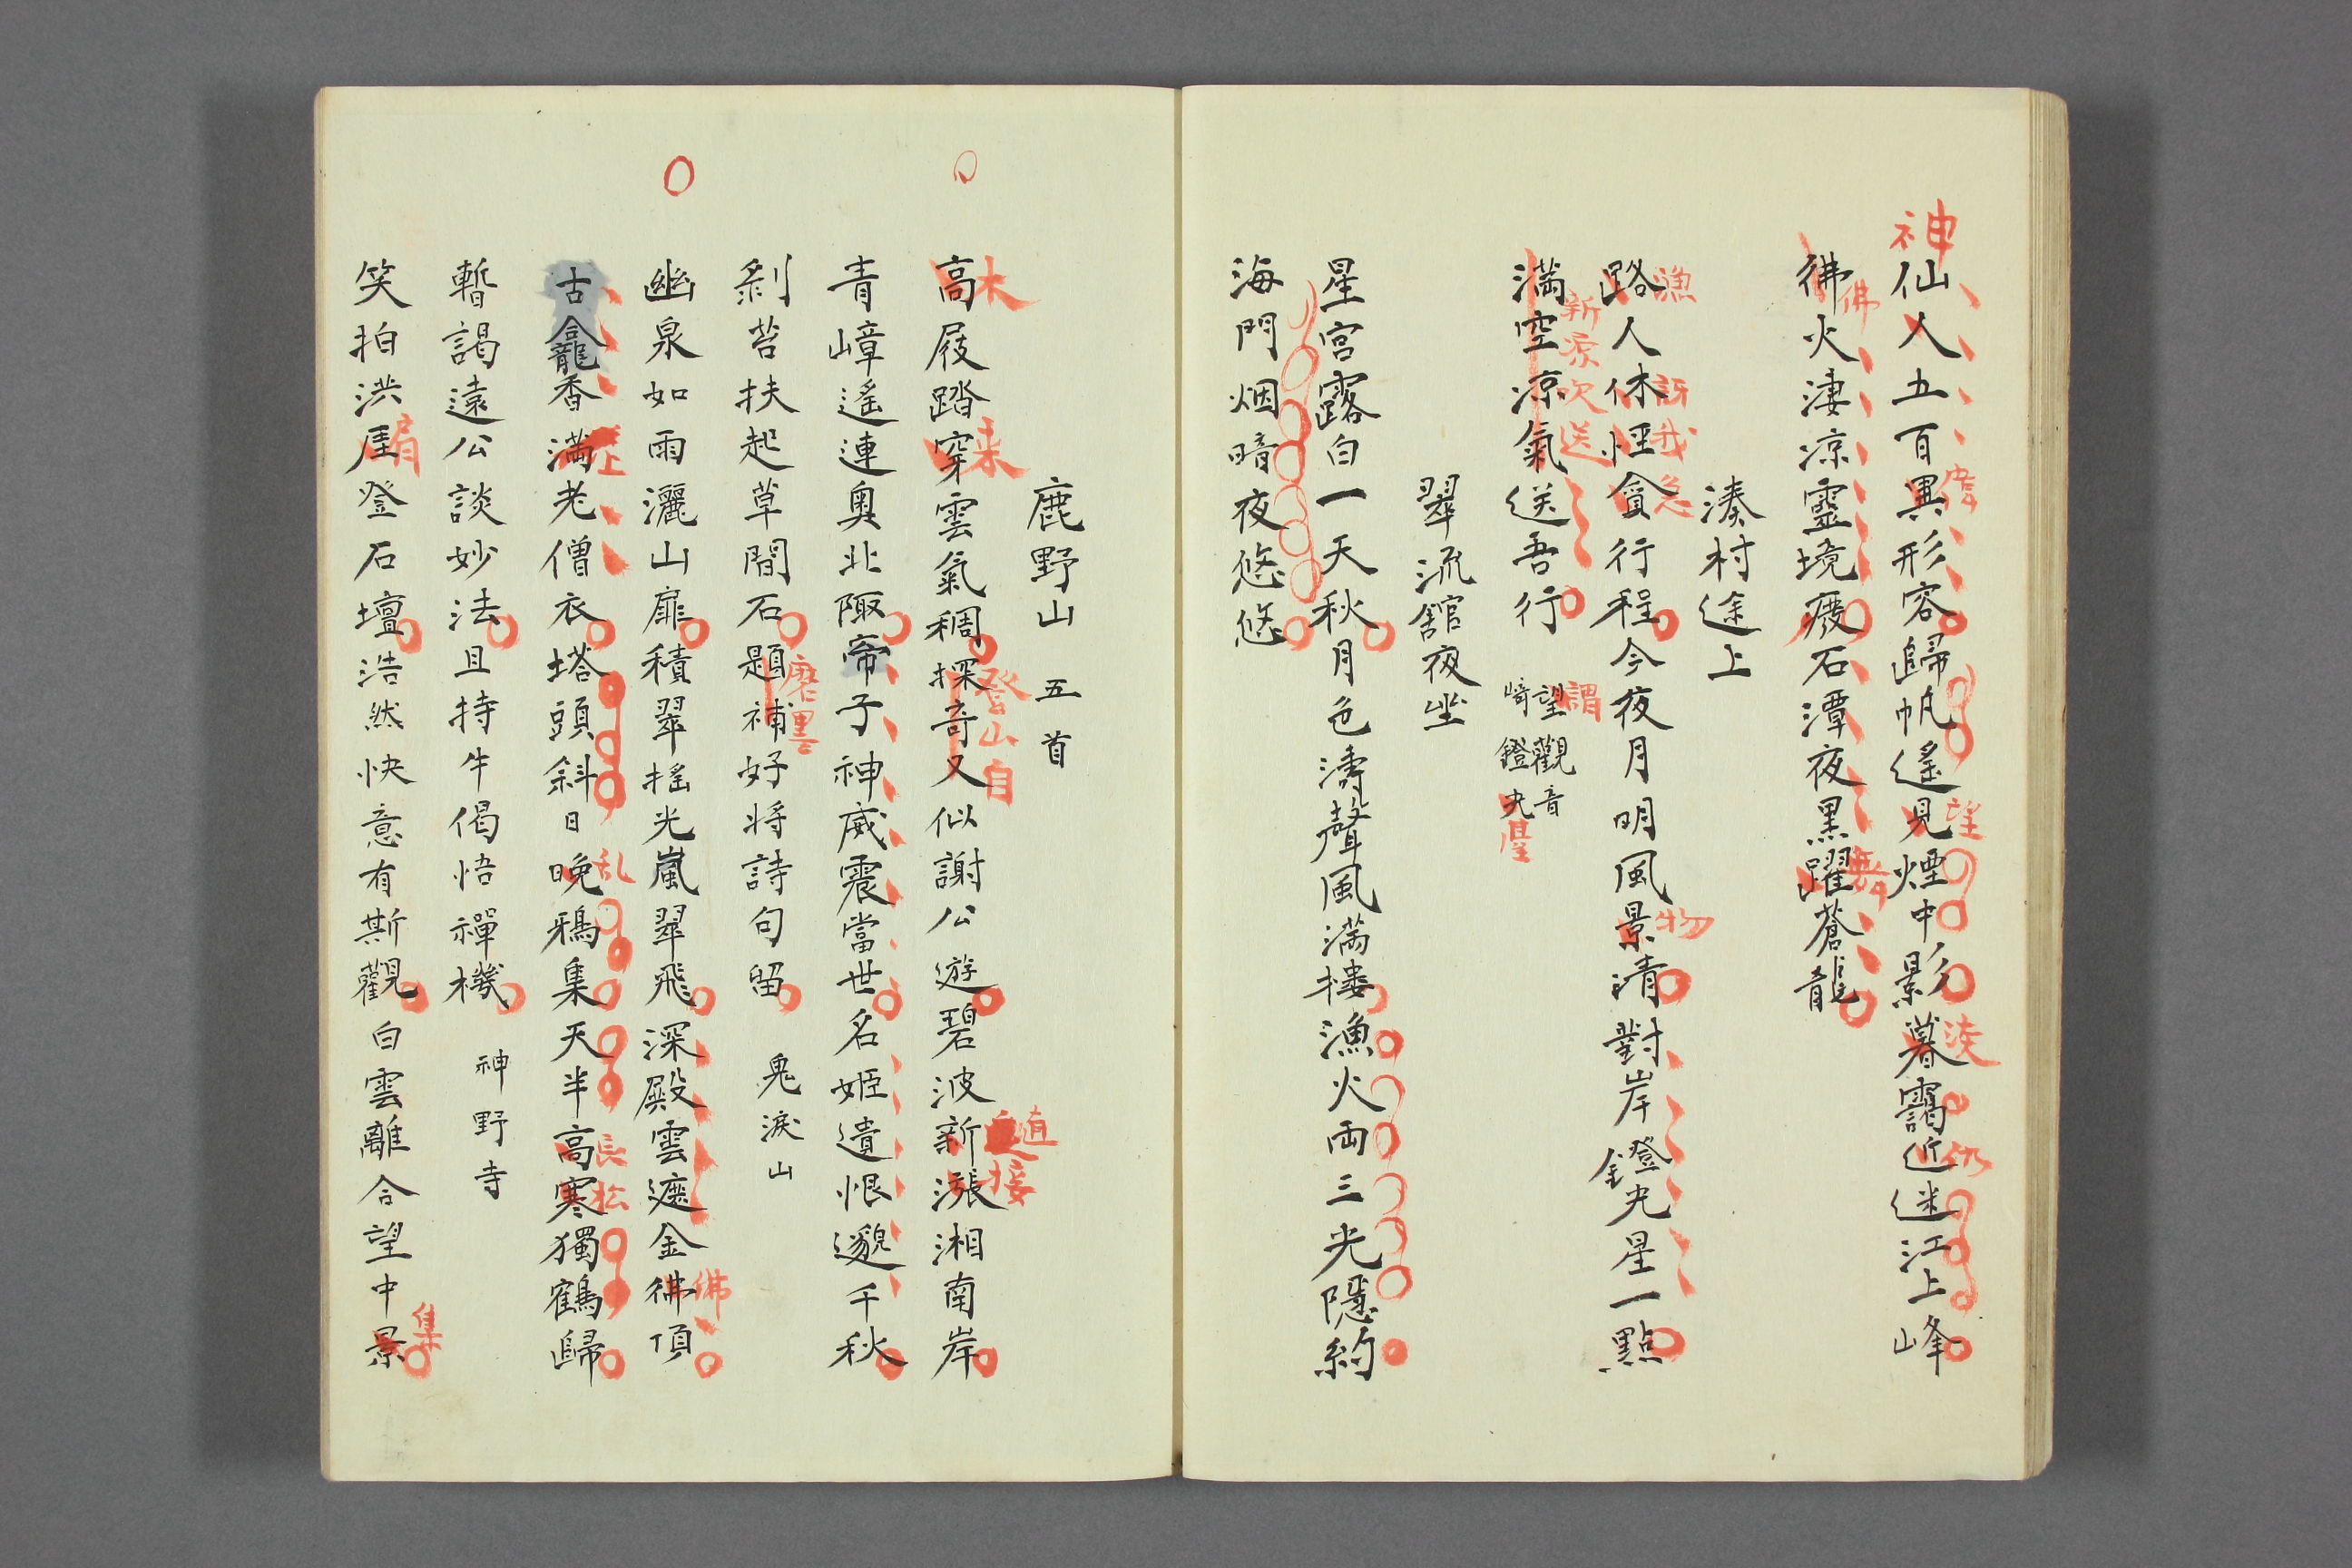 神仙人五百異形容歸帆遙見煙中影暮靄近迷江上峰
彿火淒涼靈境廢石潭夜黑躍蒼龍
湊村途上
路人休怪貪行程今夜月明風景清對岸鐙光星一點
望觀音
崎鐙光
滿空凉氣送吾行
翠流館夜坐
星宮露白一天秋月色濤聲風満楼漁火両三光隱約
海門烟暗夜悠悠
鹿野山五首
高屐踏穿雲氣稠探奇又似謝公遊碧波新漲湘南岸
青嶂遙連奥北陬帝子神威震當世名姬遺恨邈千秋
剝苔扶起草間石題補好将詩句留
鬼淚山
幽泉如雨灑山扉積翠揺光嵐翠飛深殿雲遮金彿頂
古龕香満老僧衣塔頭斜日晩鴉集天半高寒獨鶴歸
暫謁遠公談妙法且持牛偈悟禪機
神野寺
笑拍洪厓登石壇浩然快意有斯觀白雲離合望中景
神
望
淡
仍
佛
舞
漁
訝我急
物
新凉吹送
謂
星
木
来
登山自
直接
磨墨
佛
上
乱
長松
肩
集